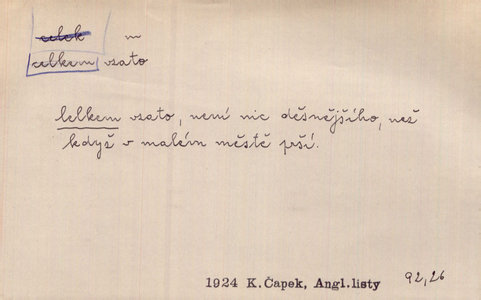 celek m
celkem vzato
Celkem vzato, není nic děsnějšího, než
když v malém městě prší.
1924 K.Čapek, Angl.listy 92,26